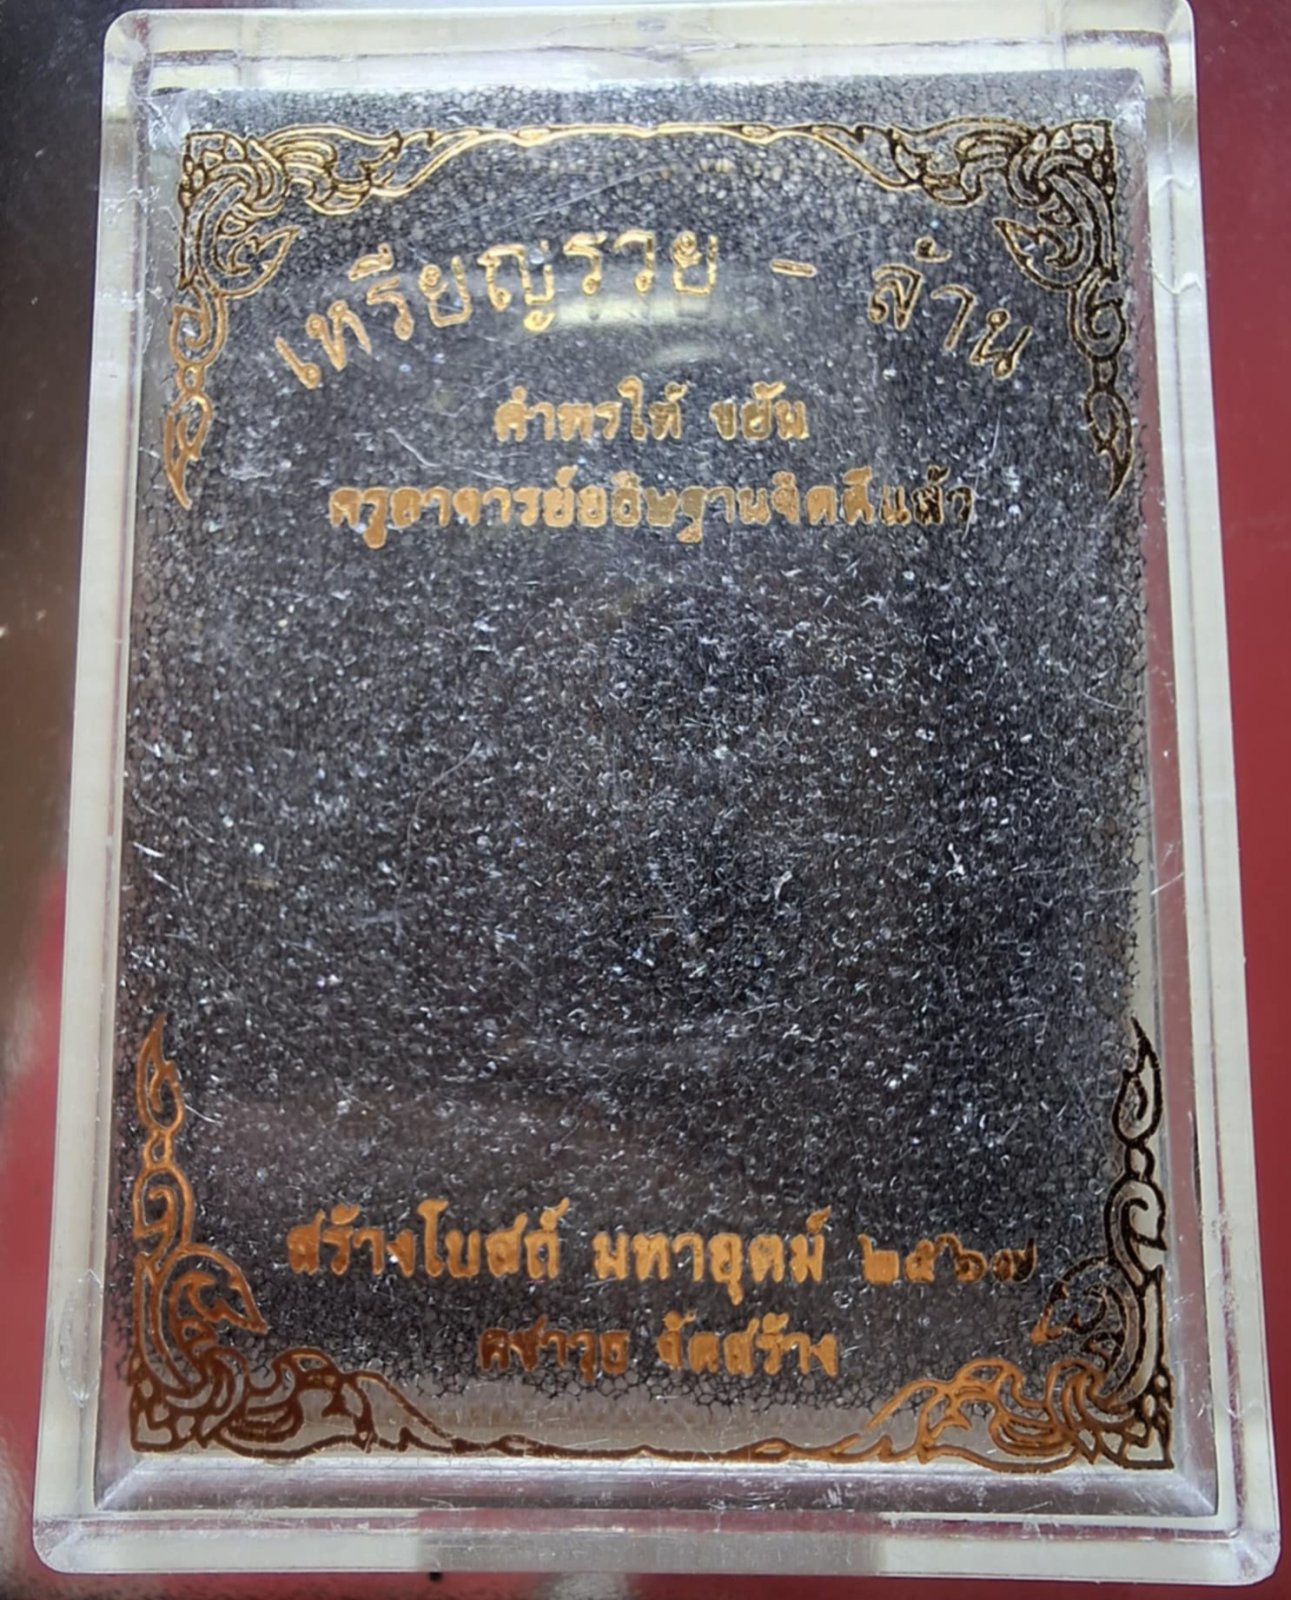 เหรียญรวย - ล้าน
คำพรให้ ขยัน
ครูอาจารย์อธิษฐานจิตดีแล้ว
สร้างโบสถ์ มหาอุตม์ ๒๕๖๗
คชาวุธ จัดสร้าง